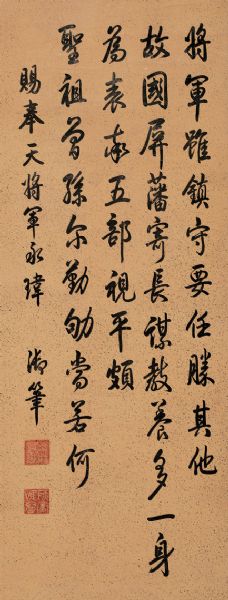 將軍雖鎮守要任勝其他
故國屏藩寄長謀教養多一身
為表率五部視平頗
聖祖曾孫尔勤劬當若何
賜奉天將軍永瑋
御筆